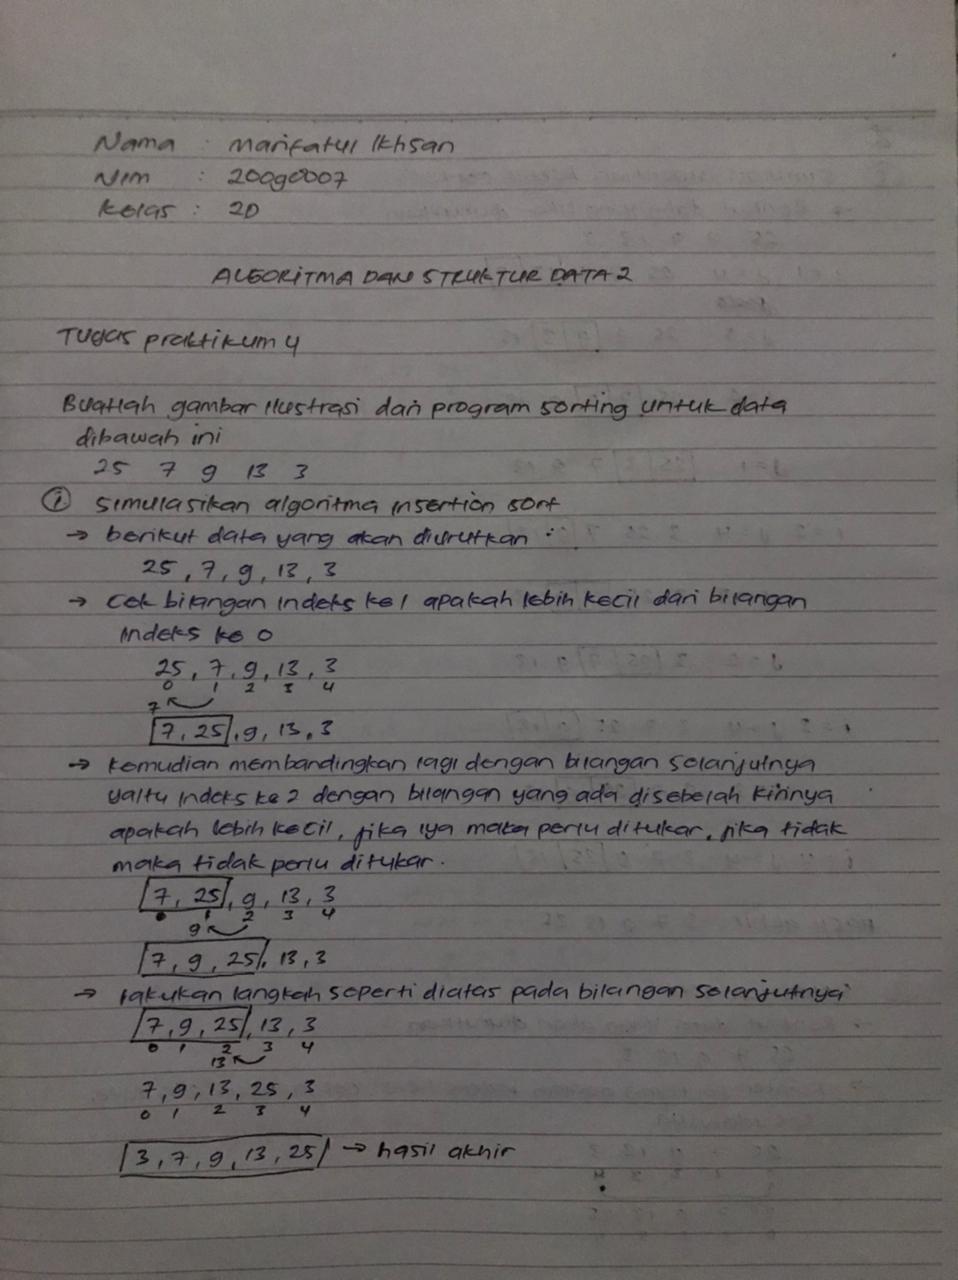 Nama : Marifatul Ikhsan
Nim : 20090007
Kelas : 2D
ALGORITMA DAN STRUKTUR DATA 2
Tugas praktikum 4
Buatlah gambar ilustrasi dari program sorting untuk data
dibawah ini
25 7 9 13 3
① Simulasikan algoritma insertion sort
→ berikut data yang akan diurutkan :
25, 7, 9, 13, 3
→ Cek bilangan indeks ke 1 apakah lebih kecil dari bilangan
indeks ke 0
25, 7, 9, 13, 3
0 1 2 3 4
7
7, 25, 9, 13, 3
→ kemudian membandingkan lagi dengan bilangan selanjutnya
yaitu indeks ke 2 dengan bilangan yang ada disebelah kirinya
apakah lebih kecil, jika iya maka perlu ditukar, jika tidak
maka tidak perlu ditukar.
7, 25, 9, 13, 3
0 1 2 3 4
9
7, 9, 25, 13, 3
→ lakukan langkah seperti diatas pada bilangan selanjutnya
7, 9, 25, 13, 3
0 1 2 3 4
13
7, 9, 13, 25, 3
0 1 2 3 4
3, 7, 9, 13, 25 → hasil akhir